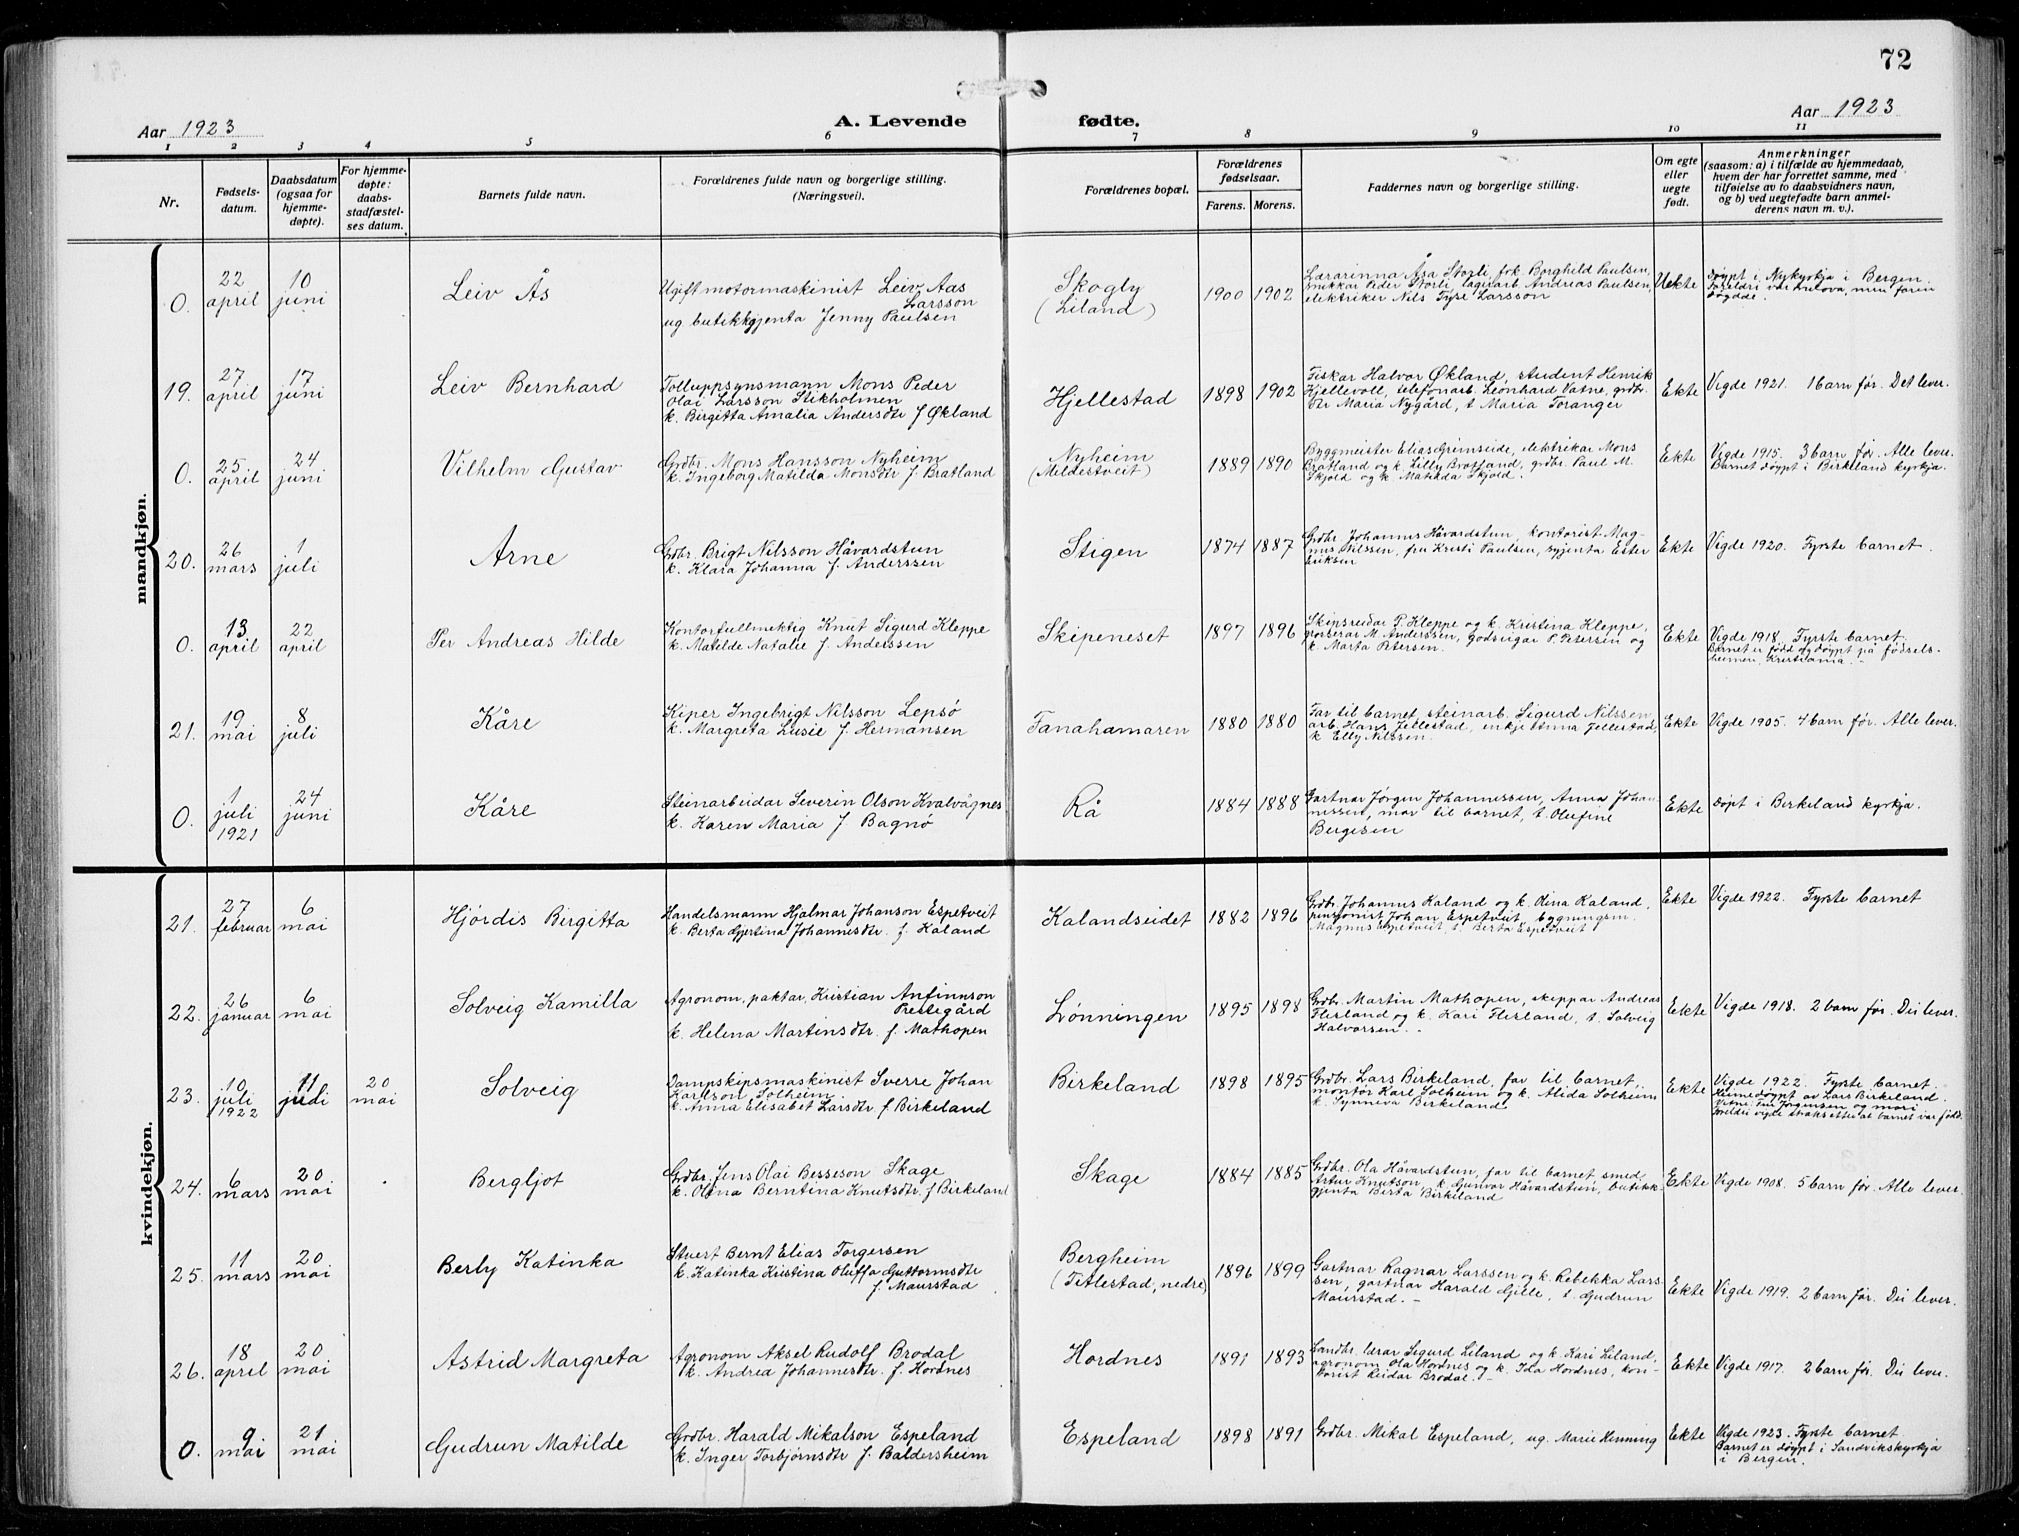 72
Aar 1923
A. Levende fødte.
Aar 1923
1 2 3 4 5 6 7 8 9 10 11
Nr.
Fødsels-
datum.
Daabsdatum
(ogsaa for
hjemme-
døpte).
For hjemme-
døpte:
daabs-
stadfæstel-
ses datum.
Barnets fulde navn.
Forældrenes fulde navn og borgerlige stilling.
(Næringsvei).
Forældrenes bopæl.
Forældrenes
fødselsaar.
Farens. Morens.
Faddernes navn og borgerlige stilling.
Om egte
eller
uegte
født.
Anmerkninger
(saasom: a) i tilfælde av hjemmedaab,
hvem der har forrettet samme, med
tilføielse av to daabsvidners navn,
og b) ved uegtefødte barn anmel-
derens navn m. v.).
mandkjøn.
0.
22
april
10
juni
Leiv Ås
Ugift motormaskinist Leiv Aas
Larsson
ug butikkgjenta Jenny Paulsen
Skogly
(Liland)
1900 1902
Lærarinna Åsa Storli, frk. Borghild Paulsen,
snikkar Peder Storli, lagerarb. Andreas Paulsen,
elektriker Nils Tyse Larsson
Uekte
Døypt i Nykyrkja i Bergen.
Foreldri var trulova, men faren
døydde.
19.
27
april
17
juni
Leiv Bernhard
Tolluppsynsmann Mons Peder
Olai Larsson Stikholmen
k. Birgitta Amalia Andersdtr f. Økland
Hjellestad
1898 1902
Fiskar Halvor Økland, student Henrik
Kjellevoll, telefonarb. Leonhard Vatne, grdbr.
dtr Maria Nygård, t. Maria Toranger
Ekte
Vigde 1921. 1 barn før. Det lever.
0.
25
april
24
juni
Vilhelm Gustav
Grdbr. Mons Hansson Nyheim
k. Ingeborg Matilda Monsdtr f. Bratland
Nyheim
(Mildestveit)
1889 1890
Byggmeister Elias Grimseide, elektrikar Mons
Bratland og k. Lilly Bratland, grdbr. Paul M.
Skjold og k. Matilda Skjold.
Ekte
Vigde 1915. 3 barn før. Alle lever.
Barnet døypt i Birkeland kyrkja.
20.
26
mars
1
juli
Arne
Grdbr. Brigt Nilsson Håvardstun
k. Klara Johanna f. Anderssen
Stigen
1874 1887
Grdbr. Johannes Håvardstun, kontorist Mag-
nus Nilssen, fru Kristi Paulsen, syjenta Ester
Eriksen
Ekte
Vigde 1920. Fyrste barnet.
0.
13
april
22
april
Per Andreas Hilde
Kontorfullmektig Knut Sigurd Kleppe
k. Matilde Natalie f. Anderssen
Skipeneset
1897 1896
Skipsreidar P. Kleppe og k. Kristina Kleppe,
grosserar M. Anderssen, godseigar P. Petersen og
k. Marta Petersen.
Ekte
Vigde 1918. Fyrste barnet.
Barnet er født og døypt på fødsels-
heimen, Kristiania. -
21.
19
mai
8
juli
Kåre
Kiper Ingebrigt Nilsson Lepsö
k. Margreta Lusie f. Hermansen
Fanahamaren
1880 1880
Far til barnet, steinarb. Sigurd Nilssen
arb. Hans Titlestad, enkje Anna Titlestad,
k. Elly Nilssen.
Ekte
Vigde 1905. 4 barn før. Alle lever.
0.
1
juli
1921
24
juni
Kåre
Steinarbeidar Severin Olson Kvalvågnes
k. Karen Maria f. Bagnö
Rå
1884 1888
Gartnar Jørgen Johannessen, Anna Johan-
nessen, mor til barnet, t. Olufine
Bergesen
Ekte
Døpt i Birkeland kyrkja.
kvindekjøn.
21.
27
februar
6
mai
Hjördis Birgitta
Handelsmann Hjalmar Johanson Espetveit
k. Berta Gjertina Johannesdtr. f. Kaland
Kalandseidet
1882 1896
Grdbr. Johannes Kaland og k. Olina Kaland,
pensjonist Johan Espetveit, bygningsm.
Magnus Espetveit, t. Berta Espetveit
Ekte
Vigde 1922. Fyrste barnet
22.
26
januar
6
mai
Solveig Kamilla
Agronom, paktar, Kristian Anfinnson
Prestegård
k. Helena Martinsdtr. f. Mathopen
Lønningen
1895 1898
Grdbr. Martin Mathopen, skippar Andreas
Flesland og k. Kari Flesland, t. Solveig
Halvorsen. -
Ekte
Vigde 1918. 2 barn før. Dei lever.
23.
10
juli
1922
11
juli
20
mai
Solveig
Dampskipsmaskinist Sverre Johan
Karlson Solheim.
k. Anna Elisabet Larsdtr f. Birkeland
Birkeland
1898 1895
Grdbr. Lars Birkeland, far til barnet,
montør Karl Solheim og k. Alida Solheim
k. Synneva Birkeland
Ekte
Vigde 1922. Fyrste barnet.
Heimedøypt av Lars Birkeland.
Vitne: Jørgensen og mori
Foreldri vigde straks etter at barnet var født.
24.
6
mars
20
mai
Bergljot
Grdbr. Jens Olai Besseson Skage
k. Olina Berntina Knutsdtr. f. Birkeland
Skage
1884 1885
Grdbr. Ola Håvardstun, far til barnet, smed
Artur Knutson, k. Gunvor Håvardstun, butikk-
gjenta Berta Birkeland
Ekte
Vigde 1908. 5 barn før. Alle lever.
25.
11
mars
20
mai
Berly Katinka
Stuert Bernt Elias Torgersen
k. Katinka Kristina Oluffa Guttormsdtr
f. Maurstad
Bergheim
(Titlestad, nedre)
1896 1899
Gartnar Ragnar Larssen og k. Rebekka Lars-
sen, gartnar Harald Gjelle, t. Gudrun
Maurstad. -
Ekte
Vigde 1919. 2 barn før. Dei lever.
26.
18
april
20
mai
Astrid Margreta
Agronom Aksel Rudolf Brodal
k. Andrea Johannesdtr. f. Hordnes
Hordnes
1891 1893
Landbr. lærar Sigurd Liland og k. Kari Liland,
agronom Ola Hordnes og k. Ida Hordnes, kon-
torist Reidar Brodal. -
Ekte
Vigde 1917. 2 barn før. Dei lever.
0.
9
mai
21
mai
Gudrun Matilde
Grdbr. Harald Mikalson Espeland
k. Inger Torbjørnsdtr f. Baldersheim
Espeland
1898 1891
Grdbr. Mikal Espeland, ug. Marie Henning
Ekte
Vigde 1923. Fyrste barnet
Barnet er døypt i Sandvikskyrkja
i Bergen.